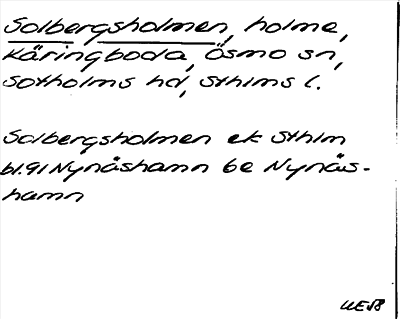 Solbergsholmen, holme,
Käringboda, Ösmo sn,
Sotholms hd, Sthlms l.
Solbergsholmen ek Sthlm
bl. 91 Nynäshamn 6e Nynäs-
hamn